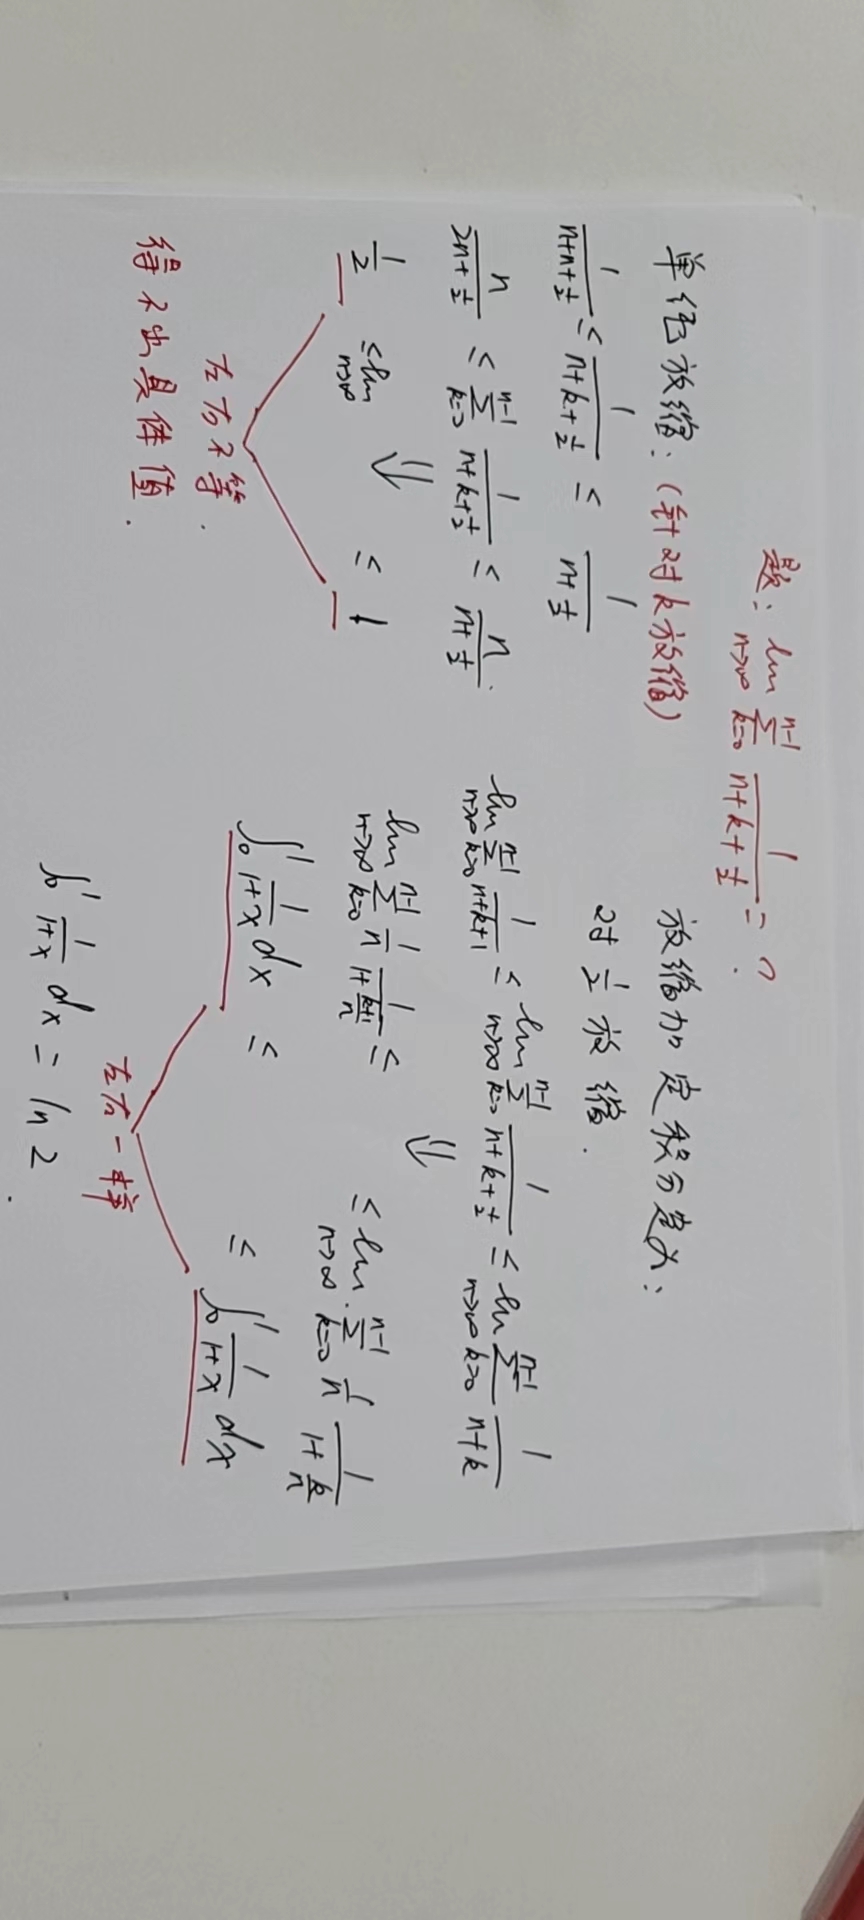 题: lim_{n→∞} ∑_{k=0}^{n-1} 1/(n+k+1/2) = ?
单纯放缩: (针对k放缩)
1/(n+n+1/2) ≤ 1/(n+k+1/2) ≤ 1/(n+1/2)
n/(2n+1/2) ≤ ∑_{k=0}^{n-1} 1/(n+k+1/2) ≤ n/(n+1/2).
⇓
1/2 ≤ lim_{n→∞} ≤ 1
左右不等.
得不出具体值.
放缩加定积分定义:
对 1/2 放缩.
lim_{n→∞} ∑_{k=0}^{n-1} 1/(n+k+1) ≤ lim_{n→∞} ∑_{k=0}^{n-1} 1/(n+k+1/2) ≤ lim_{n→∞} ∑_{k=0}^{n-1} 1/(n+k)
⇓
lim_{n→∞} ∑_{k=0}^{n-1} 1/n 1/(1+(k+1)/n) ≤ ≤ lim_{n→∞} ∑_{k=0}^{n-1} 1/n 1/(1+k/n)
∫_0^1 1/(1+x) dx ≤ ≤ ∫_0^1 1/(1+x) dx
左右一样
∫_0^1 1/(1+x) dx = ln 2.